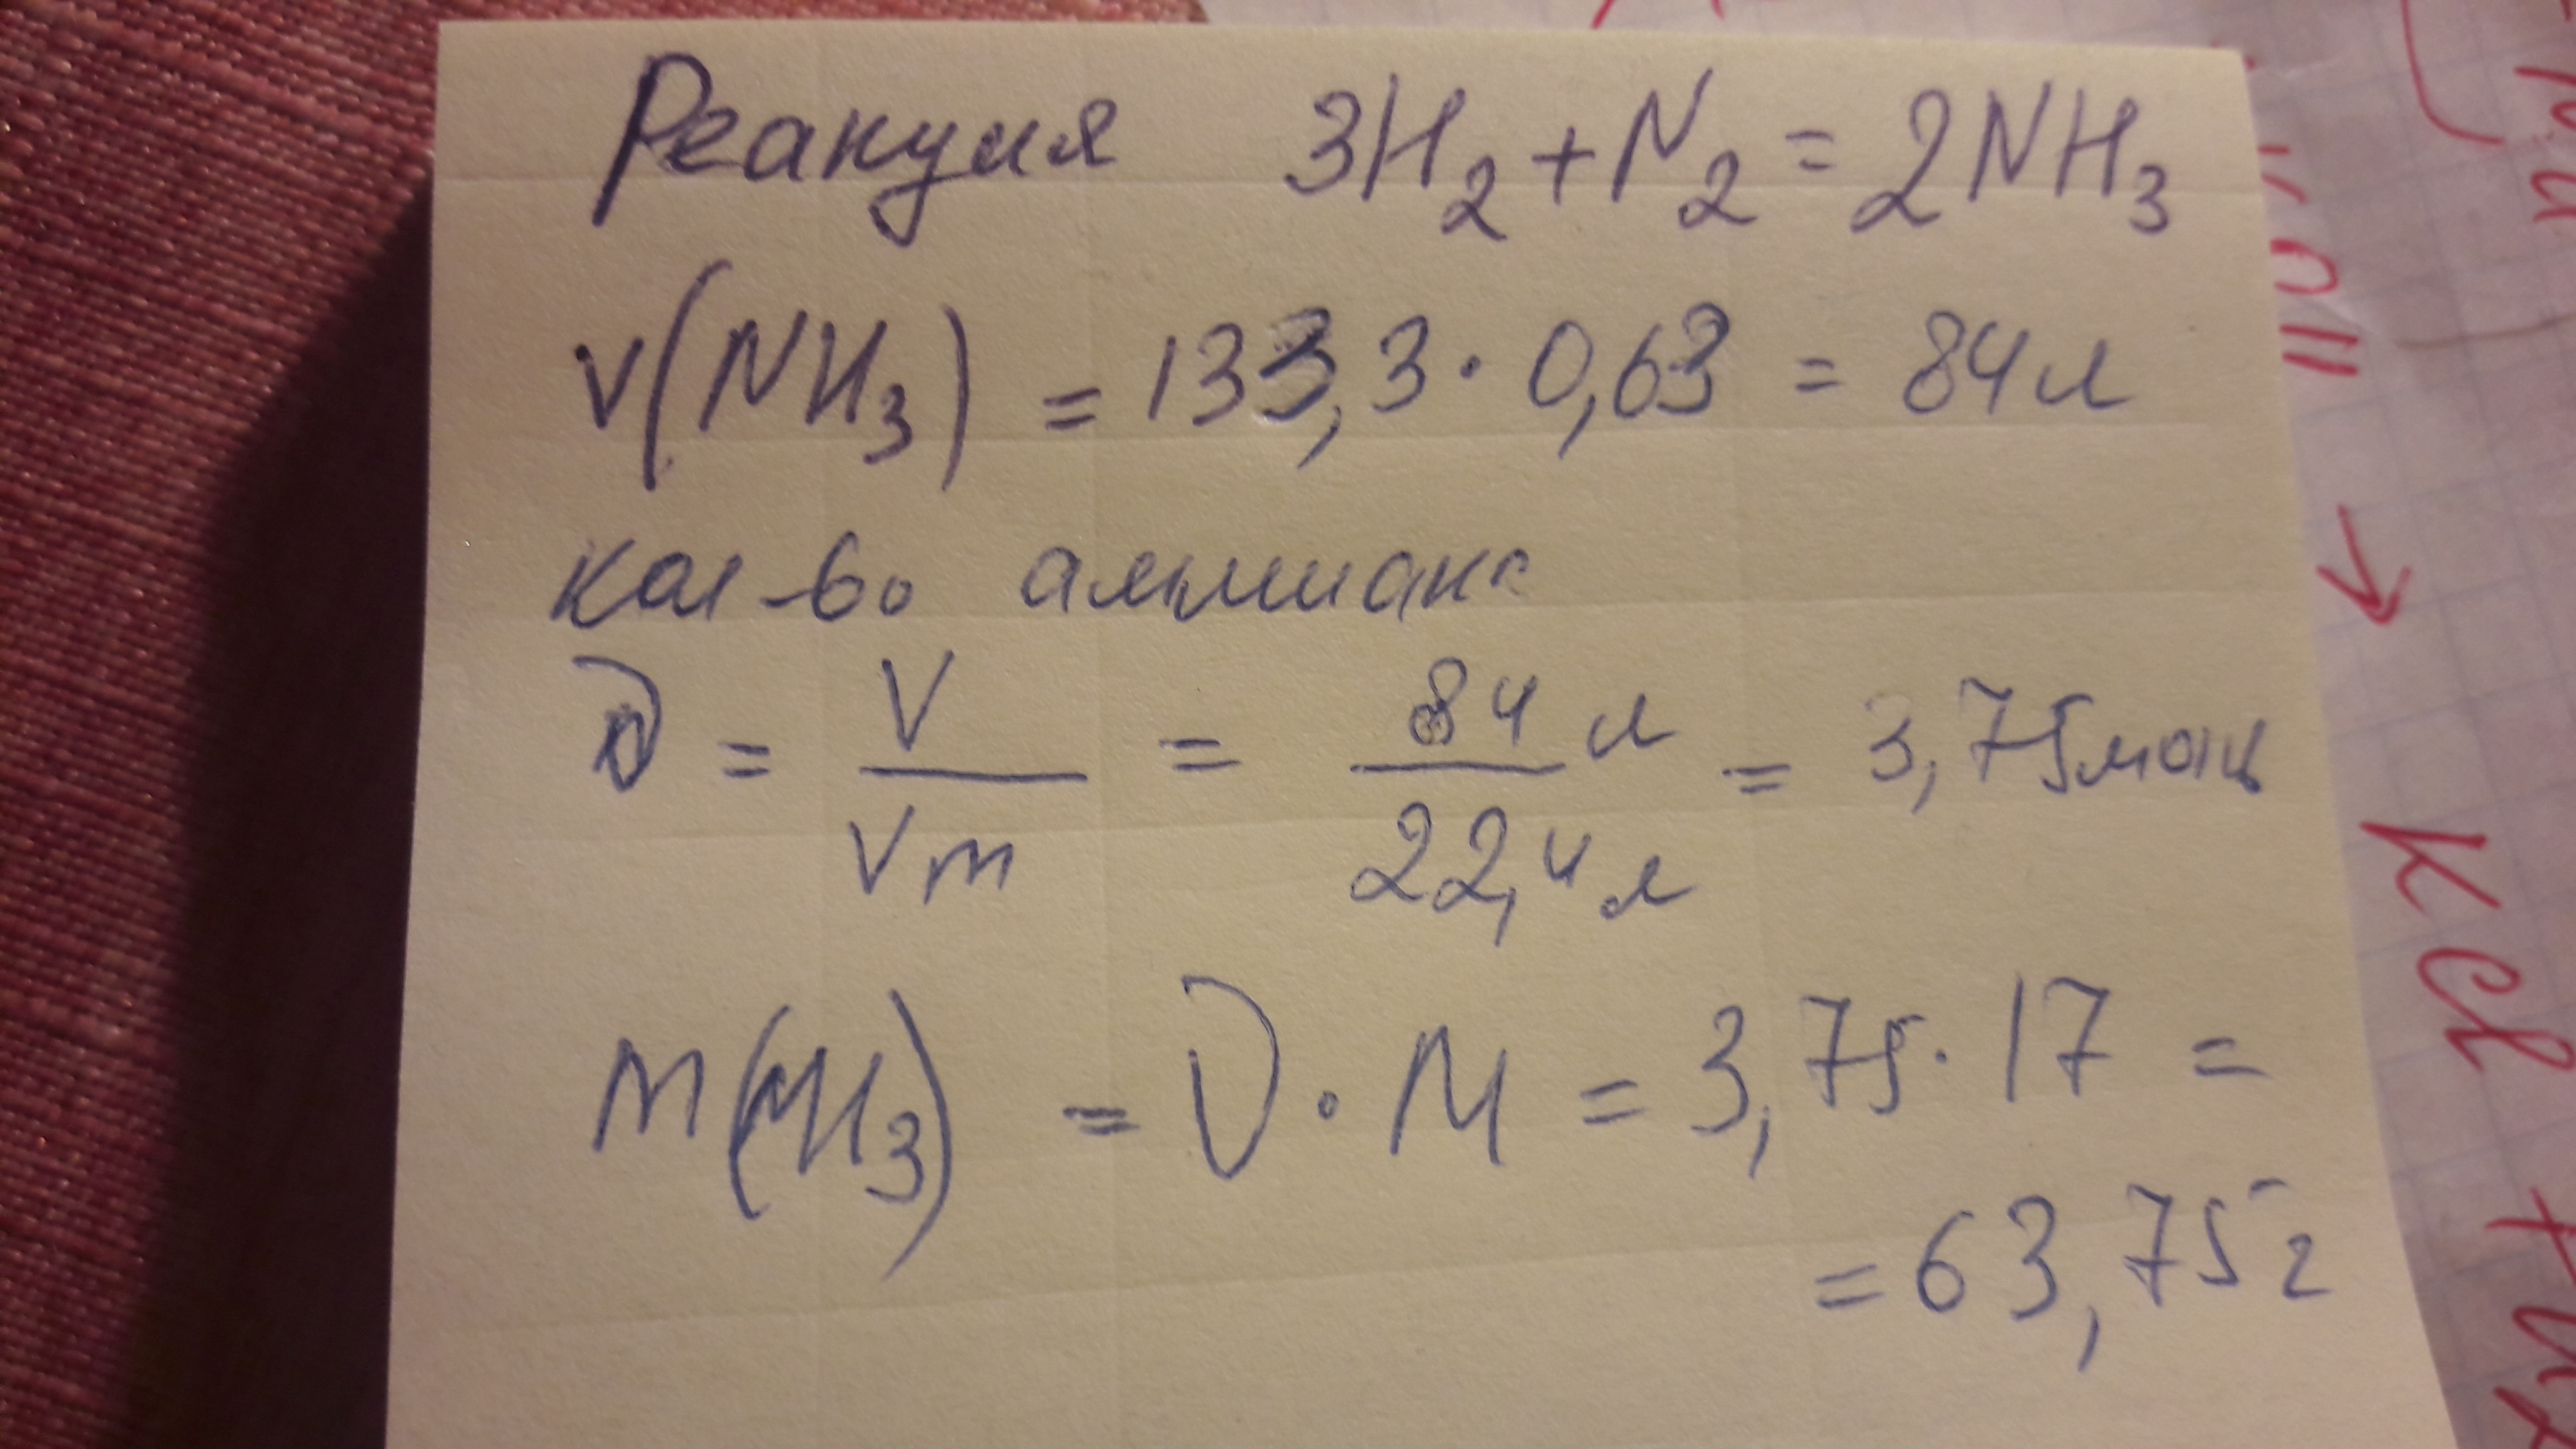 Реакция 3H₂+N₂=2NH₃
V(NH₃) = 133,3 · 0,63 = 84 л
кол-во аммиака
ν = V/Vm = 84 л/22,4 л = 3,75 моль
m(NH₃) = ν · M = 3,75 · 17 =
= 63,75 г
→ KCl +